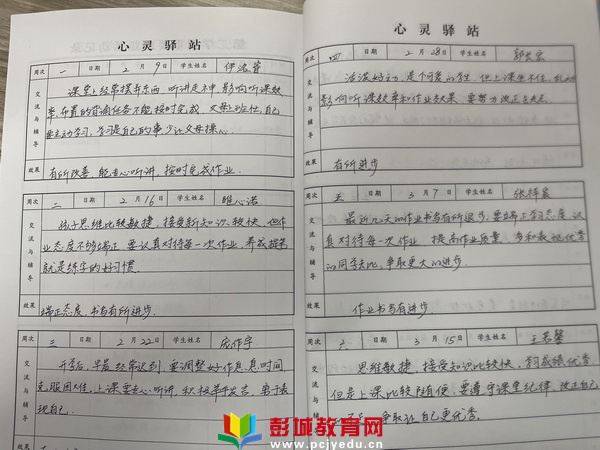 心灵驿站
周次 一 日期 2 月 9 日 学生姓名
课堂上经常摆弄东西，听讲走神，影响听课效
率，布置的背诵任务不能按时完成，父母上班忙，自己
要主动学习，学习是自己的事少让父母操心。
交流与辅导
效果 有所改善，能专心听讲，按时完成作业。
周次 二 日期 2 月 16 日 学生姓名 心诺
孩子思维比较敏捷，接受新知识较快，但作
业态度不够端正，要认真对待每一次作业，养成提笔
就是练字的好习惯。
交流与辅导
效果 端正态度，书写有所进步。
周次 三 日期 2 月 22 日 学生姓名
开学后，早晨经常迟到，要调整好作息，真时间
克服困难，上课要专心听讲，积极举手发言，勇于表
现自己。
交流与辅导
心灵驿站
周次 四 日期 2 月 28 日 学生姓名
活泼好动，是个可爱的学生，但上课坐不住，
影响听课效率和作业效果，要努力改正
交流与辅导
效果 有所进步
周次 五 日期 3 月 7 日 学生姓名
最近几天的作业书写有所退步，要端正学习态度，认
真对待每一次作业，提高作业质量，多和表现优秀
的同学去比，争取更大的进步。
交流与辅导
效果 作业书写有进步。
周次 六 日期 3 月 15 日 学生姓名 王若馨
思维敏捷，接受知识比较快，学习成绩优秀
但是上课比较随便，要遵守课堂纪律，改正自己
争取让自己更优秀。
交流与辅导
彭城教育网
www.pcjyedu.cn